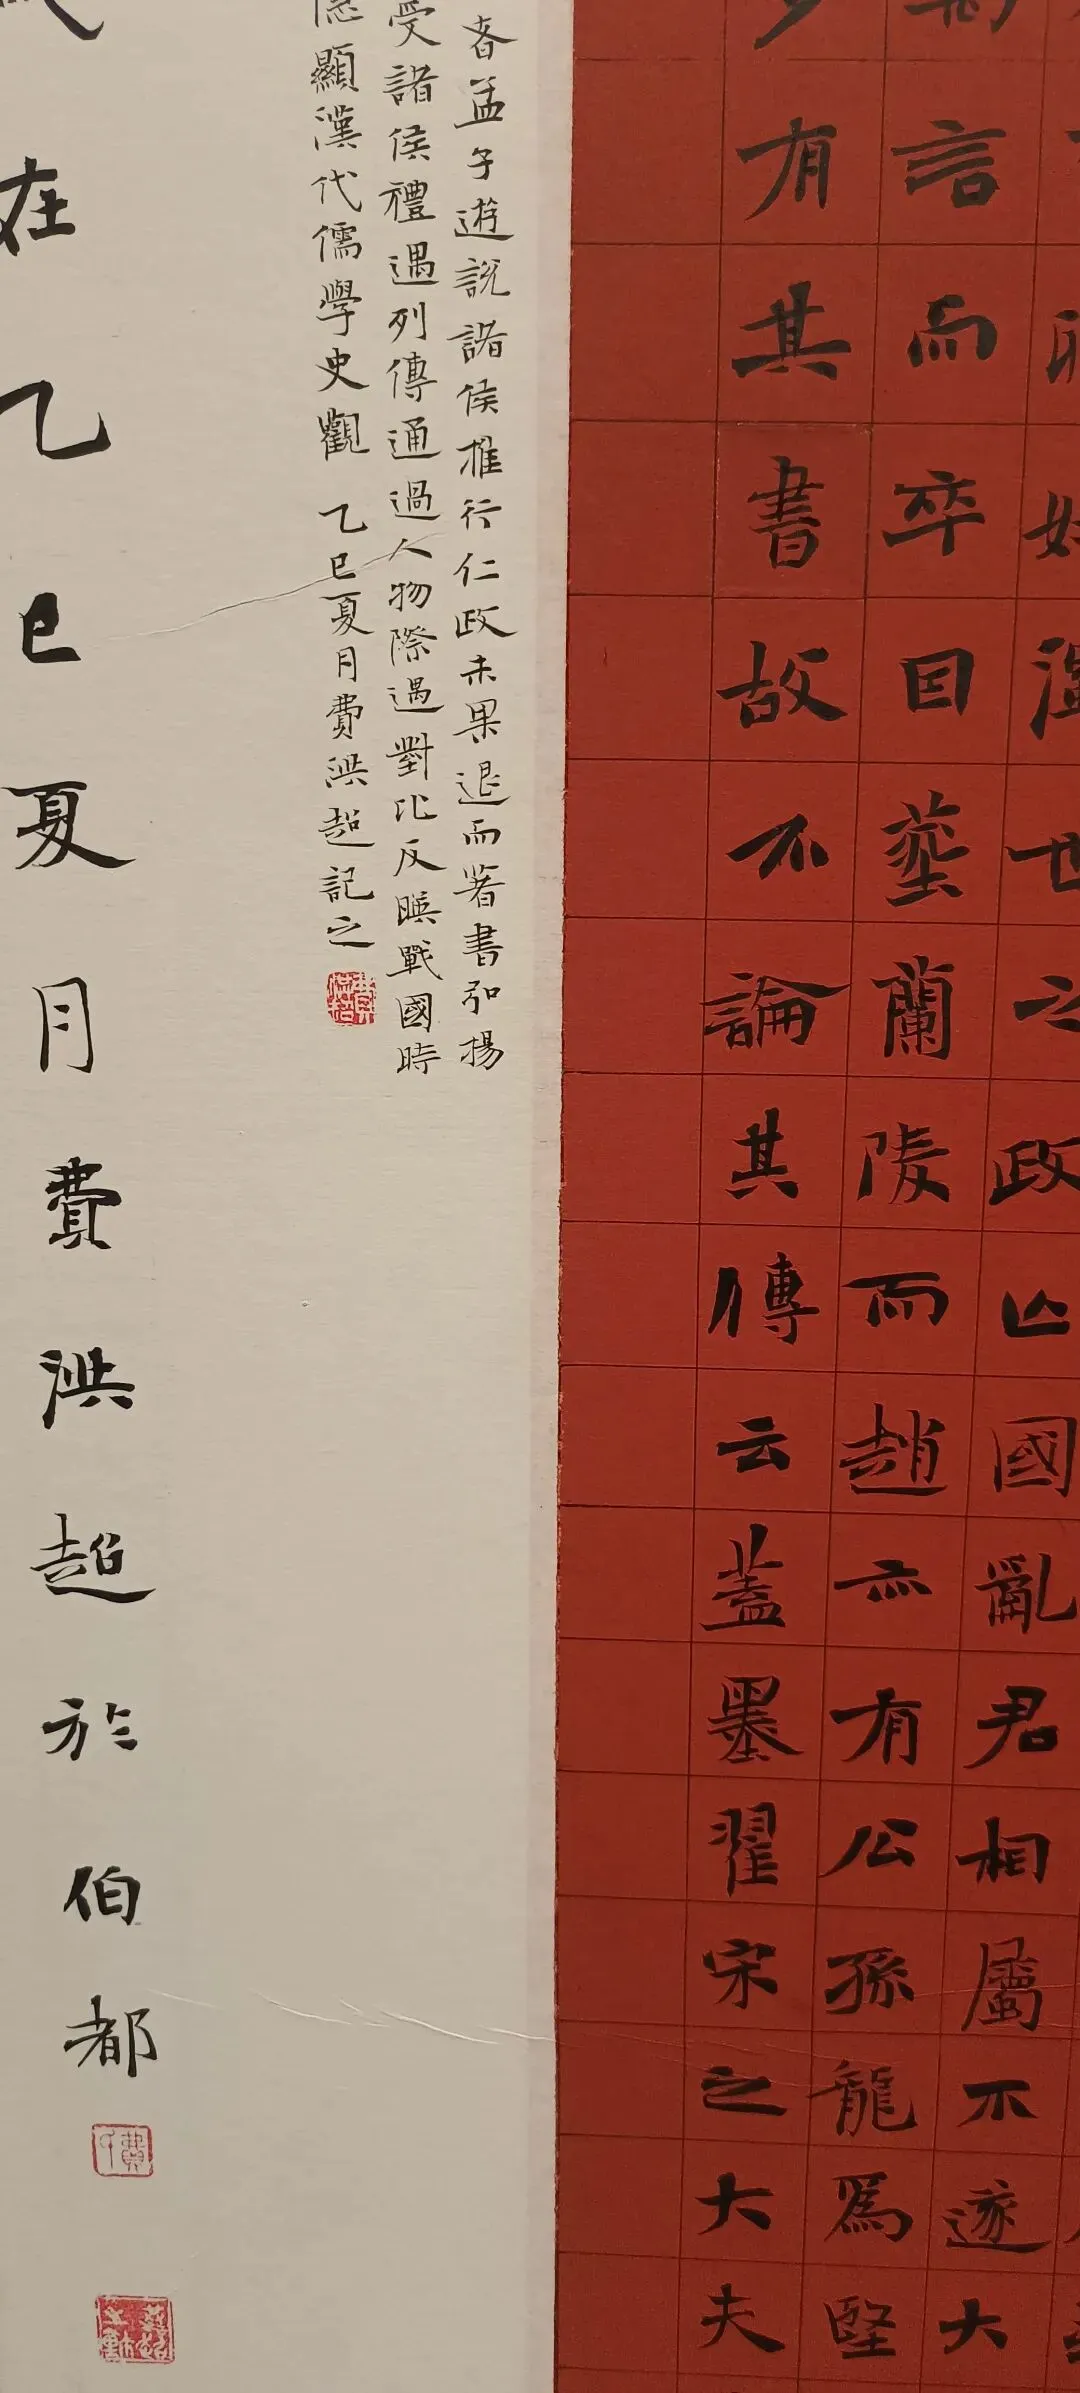 政亡國亂君相屬不遂大
言而卒因葬蘭陵而趙亦有公孫龍為堅
有其書故不論其傳云蓋墨翟宋之大夫
孟子遊說諸侯推行仁政未果退而著書弘揚
受諸侯禮遇列傳通過人物際遇對比反映戰國時
顯漢代儒學史觀 乙巳夏月費洪超記之
在乙巳夏月費洪超於伯都